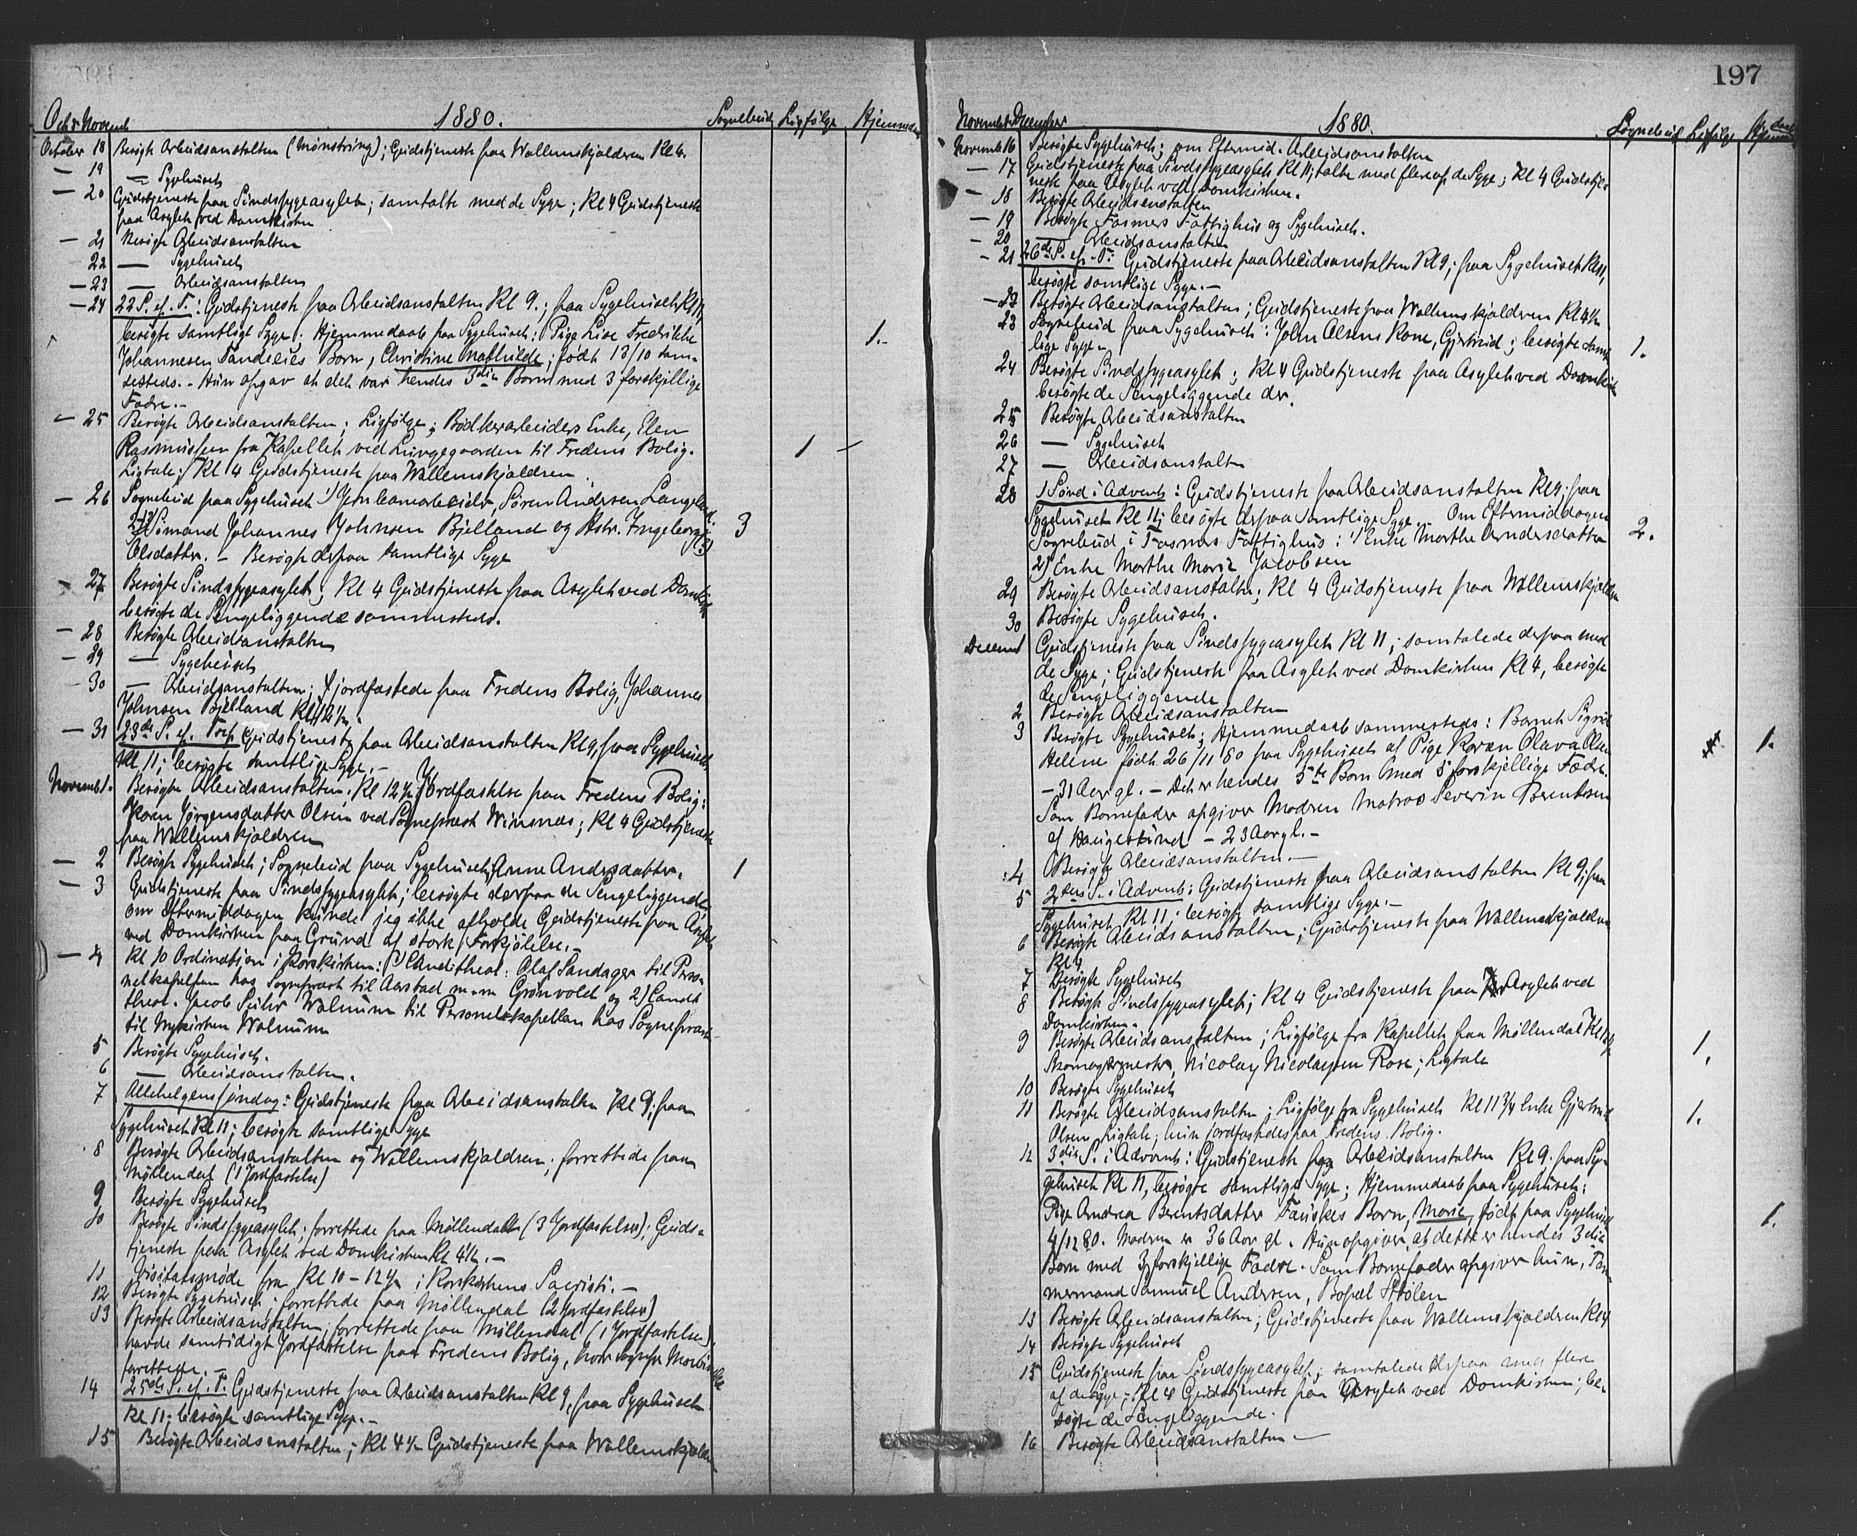 197
Octbr Novemb 1880. Sognebud Ligfølge Hjemmedaab
October 18 Besøgte Arbeidsanstalten (Mønstring); Gudstjeneste paa Wollemskjoldren Kl 4.
— 19 — Sygehuset
— 20 Gudstjeneste paa Sindssygeasylet; samtalte med de Syge; Kl 4 Gudstjeneste
paa Asylet ved Domkirken
— 21 Besøgte Arbeidsanstalten
— 22 — Sygehuset
— 23 — Arbeidsanstalten
— 24 22 S. ef. T.: Gudstjeneste paa Arbeidsanstalten Kl 9.; paa Sygehuset Kl 11,
besøgte samtlige Syge; Hjemmedaab paa Sygehuset: Pige Lise Fredrikke 1.-
Johannesen Tandeeies Barn, Christine Mathilde; født 13/10 sam-
mesteds. - Hun opgav at det var hendes 3die Barn med 3 forskjellige
Fædre. -
— 25 Besøgte Arbeidsanstalten; Ligfølge; Bødkerarbeiders Enke, Elen
Rasmussen fra Kapellet ved Lungegaarden til Fredens Bolig. 1 —
Ligtale; Kl 4 Gudstjeneste paa Wollemskjoldren.
— 26 Sognebud paa Sygehuset 1) Jernbanearbeider, Søren Andersen Langeland.
2) Sømand Johannes Johnsen Bjelland og Hstr. Ingeborg (3) 3
Olsdatter. - Besøgte derpaa samtlige Syge
— 27 Besøgte Sindssygeasylet; Kl 4 Gudstjeneste paa Asylet ved Domkirken
besøgte de Sengeliggende sammesteds.
— 28 Besøgte Arbeidsanstalten
— 29 — Sygehuset
— 30 — Arbeidsanstalten; Jordfæstede paa Fredens Bolig, Johannes
Johnsen Bjelland Kl 12½.
— 31 23de S. ef. Tref. Gudstjeneste paa Arbeidsanstalten Kl 9, paa Sygehuset
Kl 11; besøgte samtlige Syge. -
Novemb 1. Besøgte Arbeidsanstalten. Kl 12½ Jordfæstelse paa Fredens Bolig:
Karen Jørgensdatter Olsen ved Sognepræst Winsnes; Kl 4 Gudstjeneste
paa Wollemskjoldren
— 2 Besøgte Sygehuset; Sognebud paa Sygehuset, Anne Andersdatter. 1
— 3 Gudstjeneste paa Sindssygeasylet; besøgte derpaa de Sengeliggende
om Eftermiddagen kunde jeg ikke afholde Gudstjeneste paa Asylet
ved Domkirken paa Grund af stærk Forkjølelse. -
— 4 Kl 10 Ordination i Korskirken: 1) Cand: theol: Olaf Sandager til Perso-
nelkapellan hos Sognepræst til Aarstad m. m. Grønvold og 2) Candt
theol. Jacob Walnum til Personelkapellan hos Sognepræst
til Nykirken Walnum
5 Besøgte Sygehuset.
6 — Arbeidsanstalten.
7 Allehelgenssøndag: Gudstjeneste paa Arbeidsanstalten Kl 9; paa
Sygehuset Kl 11; besøgte samtlige Syge
8 Besøgte Arbeidsanstalten og Wollemskjoldren; forrettede paa
Møllendal (1 Jordfæstelse)
9 Besøgte Sygehuset
10 Besøgte Sindssygeasylet; forrettede paa Møllendal (3 Jordfæstelser); Guds-
tjeneste paa Asylet ved Domkirken Kl 4½. -
11 Visitatsmøde fra Kl 10 - 12½ i Korskirkens Sacristi. -
12 Besøgte Sygehuset; forrettede paa Møllendal (2 Jordfæstelser)
13 Besøgte Arbeidsanstalten, forrettede paa Møllendal (1 Jordfæstelse)
havde samtidigt Jordfæstelse paa Fredens Bolig, hvor
forrettede. -
14 25de S. ef. T. Gudstjeneste paa Arbeidsanstalten Kl 9, paa Sygehuset
Kl 11; besøgte samtlige Syge. -
15 Besøgte Arbeidsanstalten; Kl 4½ Gudstjeneste paa Wollemskjoldren
November December 1880. Sognebud Ligfølge Hjemmedaab
Novemb 16 Besøgte Sygehuset; om Eftermid. Arbeidsanstalten
— 17 Gudstjeneste paa Sindssygeasylet Kl 11; talte med flere af de Syge; Kl 4 Gudstje-
neste paa Asylet ved Domkirken.
— 18 Besøgte Arbeidsanstalten
— 19 Besøgte Fasmers Fattighus og Sygehuset.
— 20 — Arbeidsanstalten
— 21 26de S. ef. T: Gudstjeneste paa Arbeidsanstalten Kl 9; paa Sygehuset Kl 11,
besøgte samtlige Syge. -
— 22 Besøgte Arbeidsanstalten; Gudstjeneste paa Wollemskjoldren Kl 4½
23 Sognebud paa Sygehuset: John Olsens Kone, Gjertrud; besøgte samt- 1.
lige Syge -
24 Besøgte Sindssygeasylet; Kl 4 Gudstjeneste paa Asylet ved Domkirken
besøgte de Sengeliggende der.
25 Besøgte Arbeidsanstalten
26 — Sygehuset
27 — Arbeidsanstalten
28 1 Sønd i Advent: Gudstjeneste paa Arbeidsanstalten Kl 9; paa
Sygehuset Kl 11; besøgte derpaa samtlige Syge. - Om Eftermiddagen
Sognebud i Fasmers Fattighus: 1) Enke Marthe Andersdatter 2.
2) Enke Marthe Marie Jacobsen
29 Besøgte Arbeidsanstalten; Kl 4 Gudstjeneste paa Wollemskjoldren
30 Besøgte Sygehuset.
Decemb 1 Gudstjeneste paa Sindssygeasylet Kl 11; samtalede derpaa med
de Syge; Gudstjeneste paa Asylet ved Domkirken Kl 4, besøgte
de Sengeliggende
2 Besøgte Arbeidsanstalten
3 Besøgte Sygehuset; Hjemmedaab sammesteds: Barnet Sigrid
Helene født 26/11 80 paa Sygehuset af Pige Karen Olava Olsen 1.
- 31 Aar gl. - Det er hendes 5te Barn med 5 forskjellige Fædre.
Som Barnefader opgiver Modren Matros Severin Berentsen
af Haugesund - 23 Aar gl. -
4 Besøgte Arbeidsanstalten. -
5 2den S. i Advent: Gudstjeneste paa Arbeidsanstalten Kl 9; paa
Sygehuset Kl 11; besøgte samtlige Syge. -
6 Besøgte Arbeidsanstalten; Gudstjeneste paa Wollemskjoldren
Kl 4
7 Besøgte Sygehuset
8 Besøgte Sindssygeasylet; Kl 4 Gudstjeneste paa Asylet ved
Domkirken.
9 Besøgte Arbeidsanstalten; Ligfølge fra Kapellet paa Møllendal Kl
Skomagermester, Nicolay Nicolaysen Rose; Ligtale 1.
10 Besøgte Sygehuset
11 Besøgte Arbeidsanstalten; Ligfølge fra Sygehuset Kl 11¾ Enke Gjertrud 1.
Olsen Ligtale; hun jordfæstedes paa Fredens Bolig.
12 3die S. i Advent: Gudstjeneste paa Arbeidsanstalten Kl 9. paa Sy-
gehuset Kl 11, besøgte samtlige Syge; Hjemmedaab paa Sygehuset:
Pige Andrea Berentsdatter Fauskes Barn, Marie, født paa Sygehuset 1.
4/12 80. Modren er 36 Aar gl. Hun opgiver, at dette er hendes 3die
Barn med 3 forskjellige Fædre. Som Barnefader opgiver hun, Tøm-
mermand Samuel Andersen, Bopæl Stølen
13 Besøgte Arbeidsanstalten; Gudstjeneste paa Wollemskjoldren Kl 4
14 Besøgte Sygehuset
15 Gudstjeneste paa Sindssygeasylet; samtalede derpaa med flere
af de Syge; Kl 4 Gudstjeneste paa Asylet ved Domkirken; be-
søgte de Sengeliggende.
16 Besøgte Arbeidsanstalten -